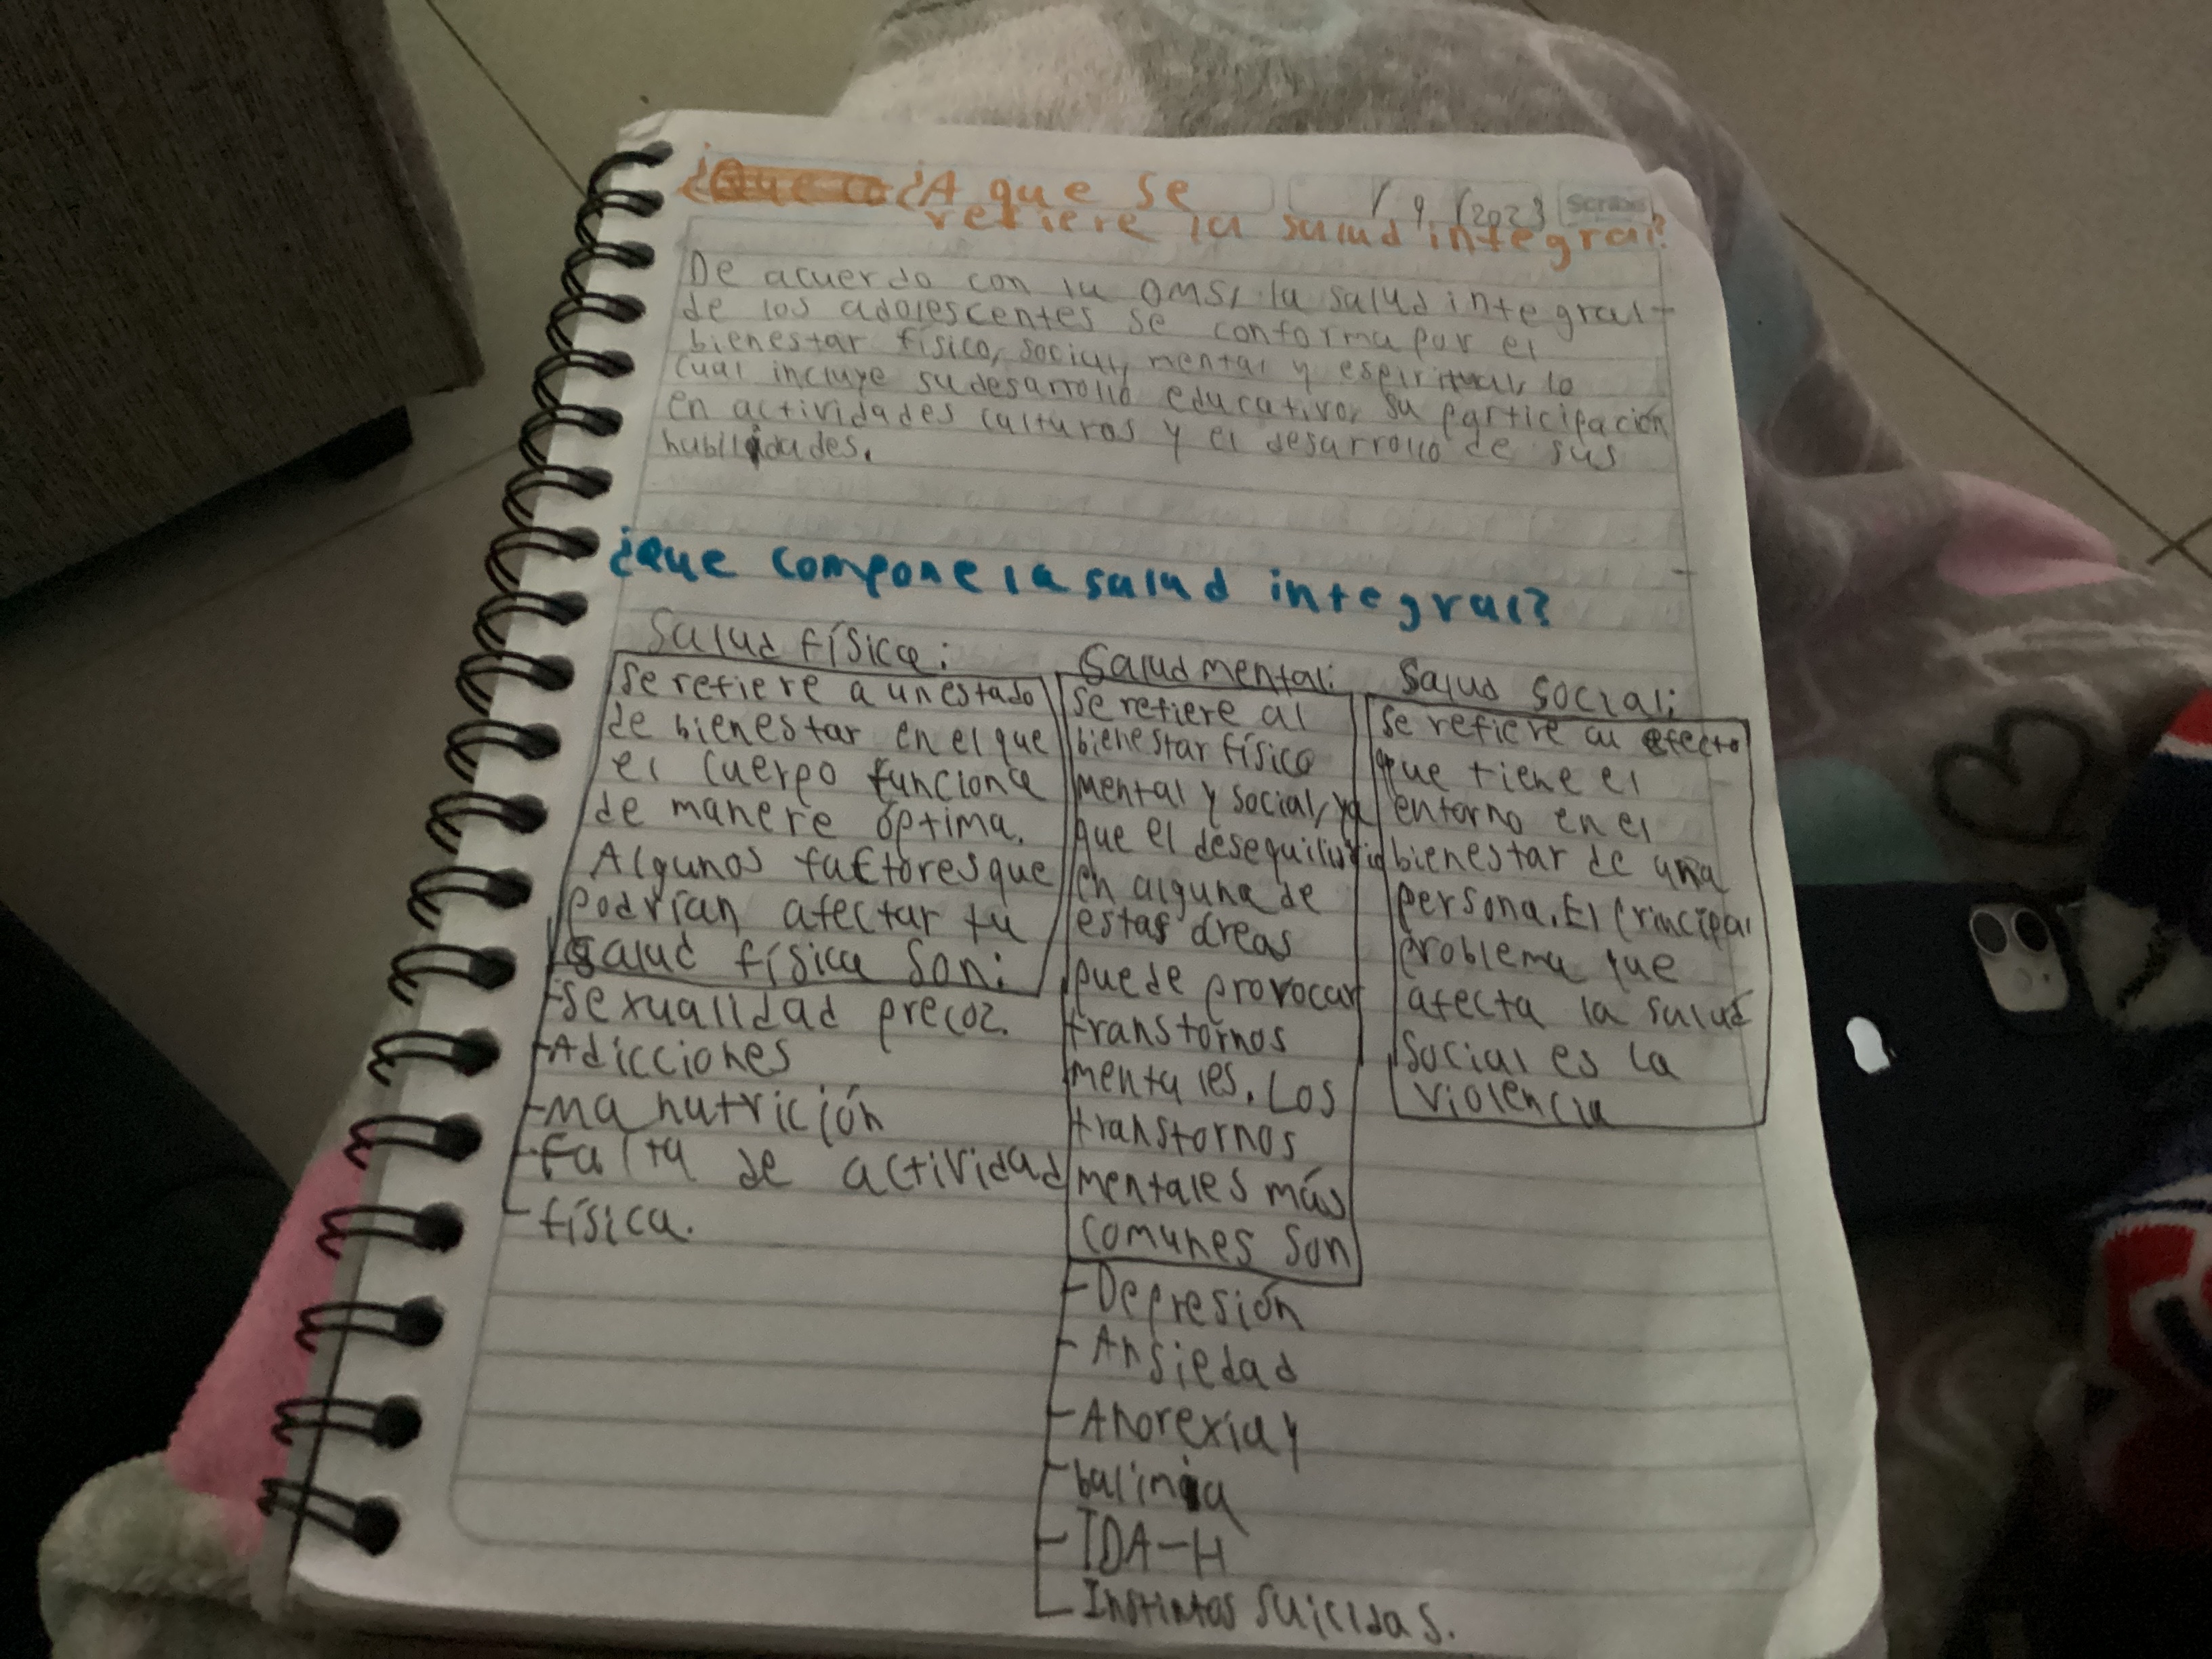 ¿A que se
/ 9 /2023 Scribe
refiere la salud integral?
De acuerdo con la OMS, la salud integral
de los adolescentes se conforma por el
bienestar físico, social, mental y espiritual, lo
cual incluye su desarrollo educativo, su participación
en actividades culturas y el desarrollo de sus
habilidades.
¿Que compone la salud integral?
Salud física:
Se refiere a un estado
de bienestar en el que
el cuerpo funciona
de manere óptima.
Algunos factores que
podrían afectar tu
salud física son:
-sexualidad precoz.
-Adicciones
-ma nutrición
-Falta de actividad
-física.
Salud mental:
Se refiere al
bienestar físico
mental y social, ya
que el desequilibrio
en alguna de
estas áreas
puede provocar
transtornos
mentales. Los
transtornos
mentales más
comunes son
-Depresión
-Ansiedad
-Anorexia y
-bulimia
-TDA-H
-Instintos suicidas.
Salud social:
Se refiere al efecto
que tiene el
entorno en el
bienestar de una
persona. El principal
problema que
afecta la salud
social es la
violencia